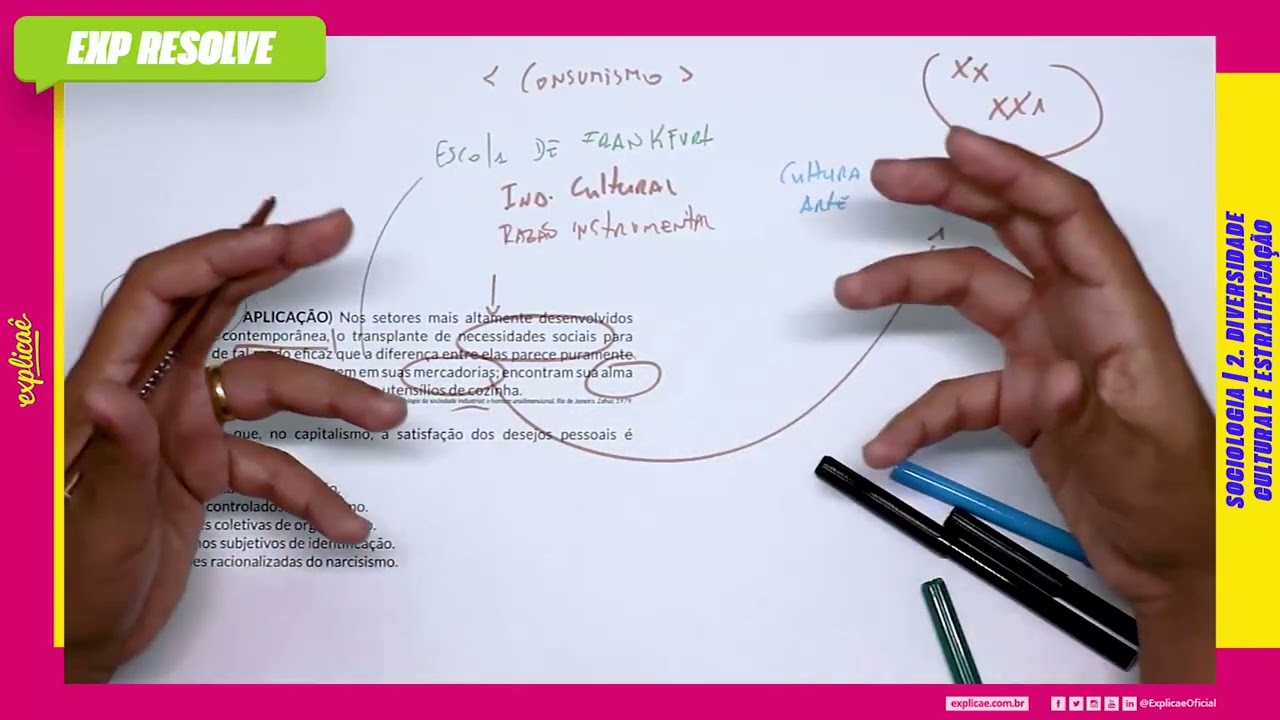 EXP RESOLVE
< CONSUMISMO >
XX
XX1
ESCOLA DE FRANKFURT
IND. CULTURAL
RAZÃO INSTRUMENTAL
CULTURA
ARTE
APLICAÇÃO) Nos setores mais altamente desenvolvidos
contemporânea, o transplante de necessidades sociais para
de tal modo eficaz que a diferença entre elas parece puramente
em suas mercadorias; encontram sua alma
utensílios de cozinha.
da sociedade industrial: o homem unidimensional. Rio de Janeiro: Zahar, 1979
que, no capitalismo, a satisfação dos desejos pessoais é
controlados
coletivas de
subjetivos de identificação.
racionalizadas do narcisismo.
explicaê
SOCIOLOGIA | 2. DIVERSIDADE
CULTURAL E ESTRATIFICAÇÃO
explicae.com.br
@ExplicaeOficial